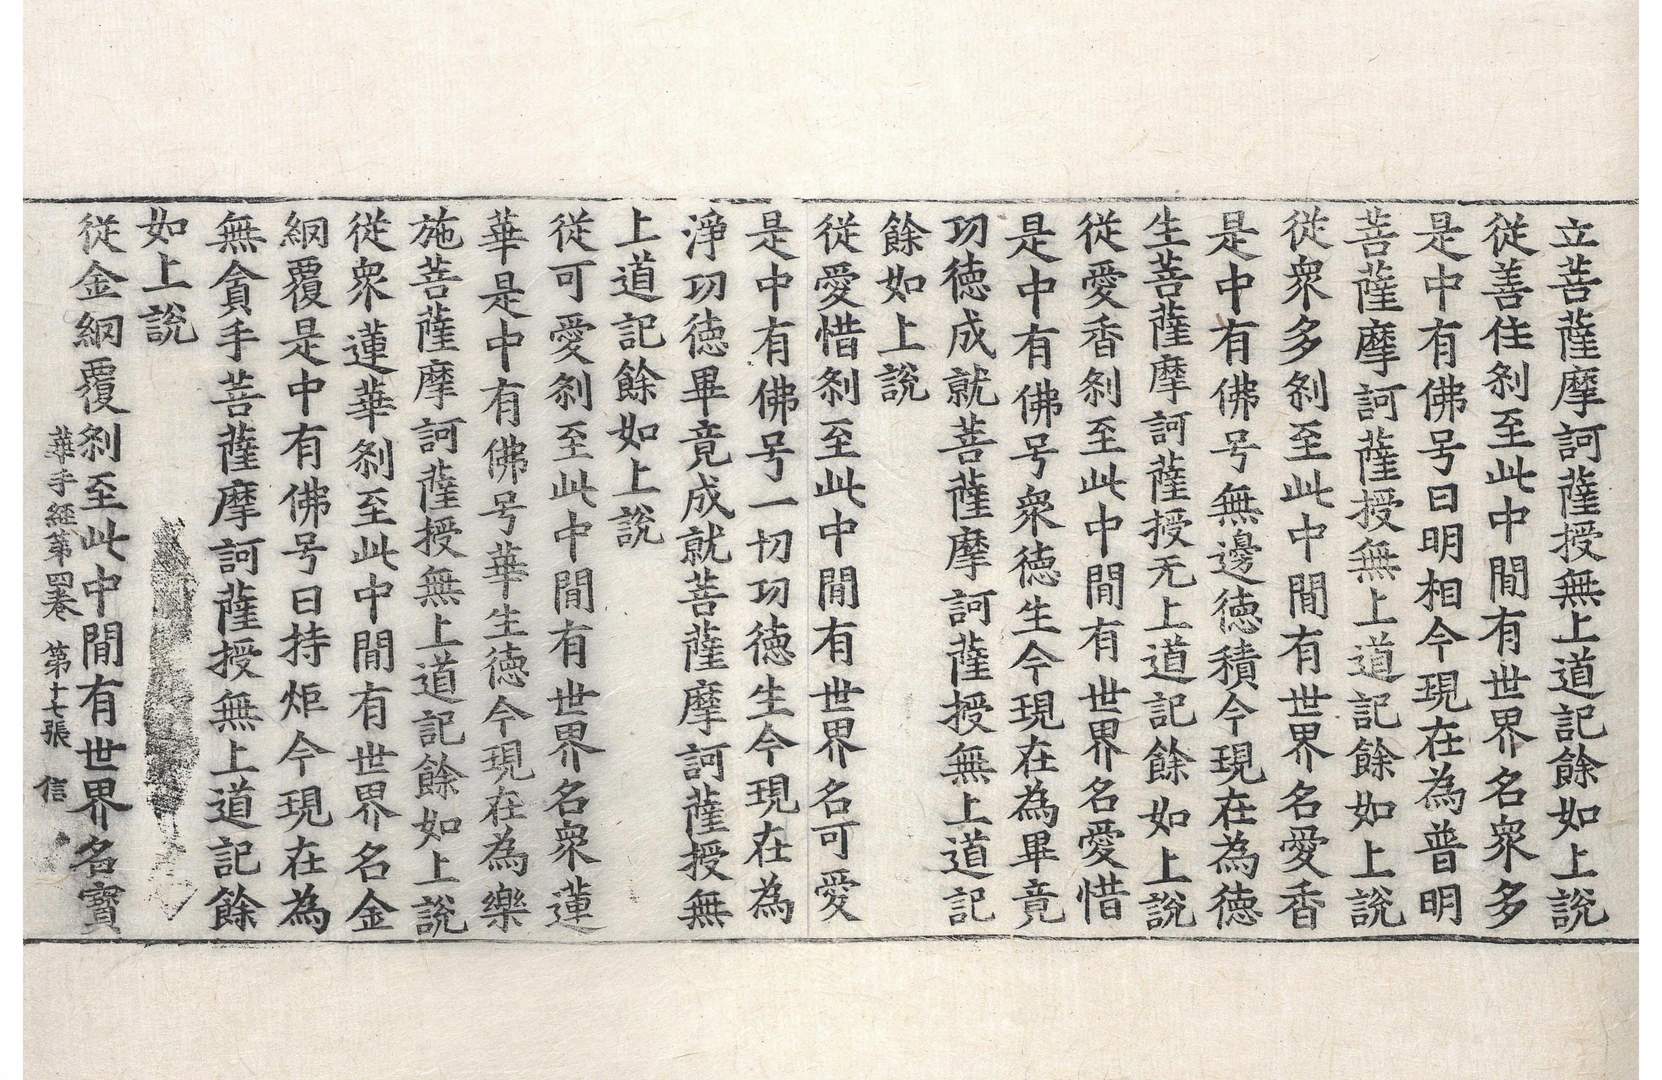 立菩薩摩訶薩授無上道記餘如上說
從善住剎至此中閒有世界名衆多
是中有佛号曰明相今現在為普明
菩薩摩訶薩授無上道記餘如上說
從衆多剎至此中閒有世界名愛香
是中有佛号無邊德積今現在為德
生菩薩摩訶薩授无上道記餘如上說
從愛香剎至此中閒有世界名愛惜
是中有佛号衆德生今現在為畢竟
功德成就菩薩摩訶薩授無上道記
餘如上說
從愛惜剎至此中閒有世界名可愛
是中有佛号一切功德生今現在為
淨功德畢竟成就菩薩摩訶薩授無
上道記餘如上說
從可愛剎至此中閒有世界名衆蓮
華是中有佛号華生德今現在為樂
施菩薩摩訶薩授無上道記餘如上說
從衆蓮華剎至此中閒有世界名金
網覆是中有佛号曰持炬今現在為
無貪手菩薩摩訶薩授無上道記餘
如上說
從金網覆剎至此中閒有世界名寶
華手經第四卷 第十七張 信